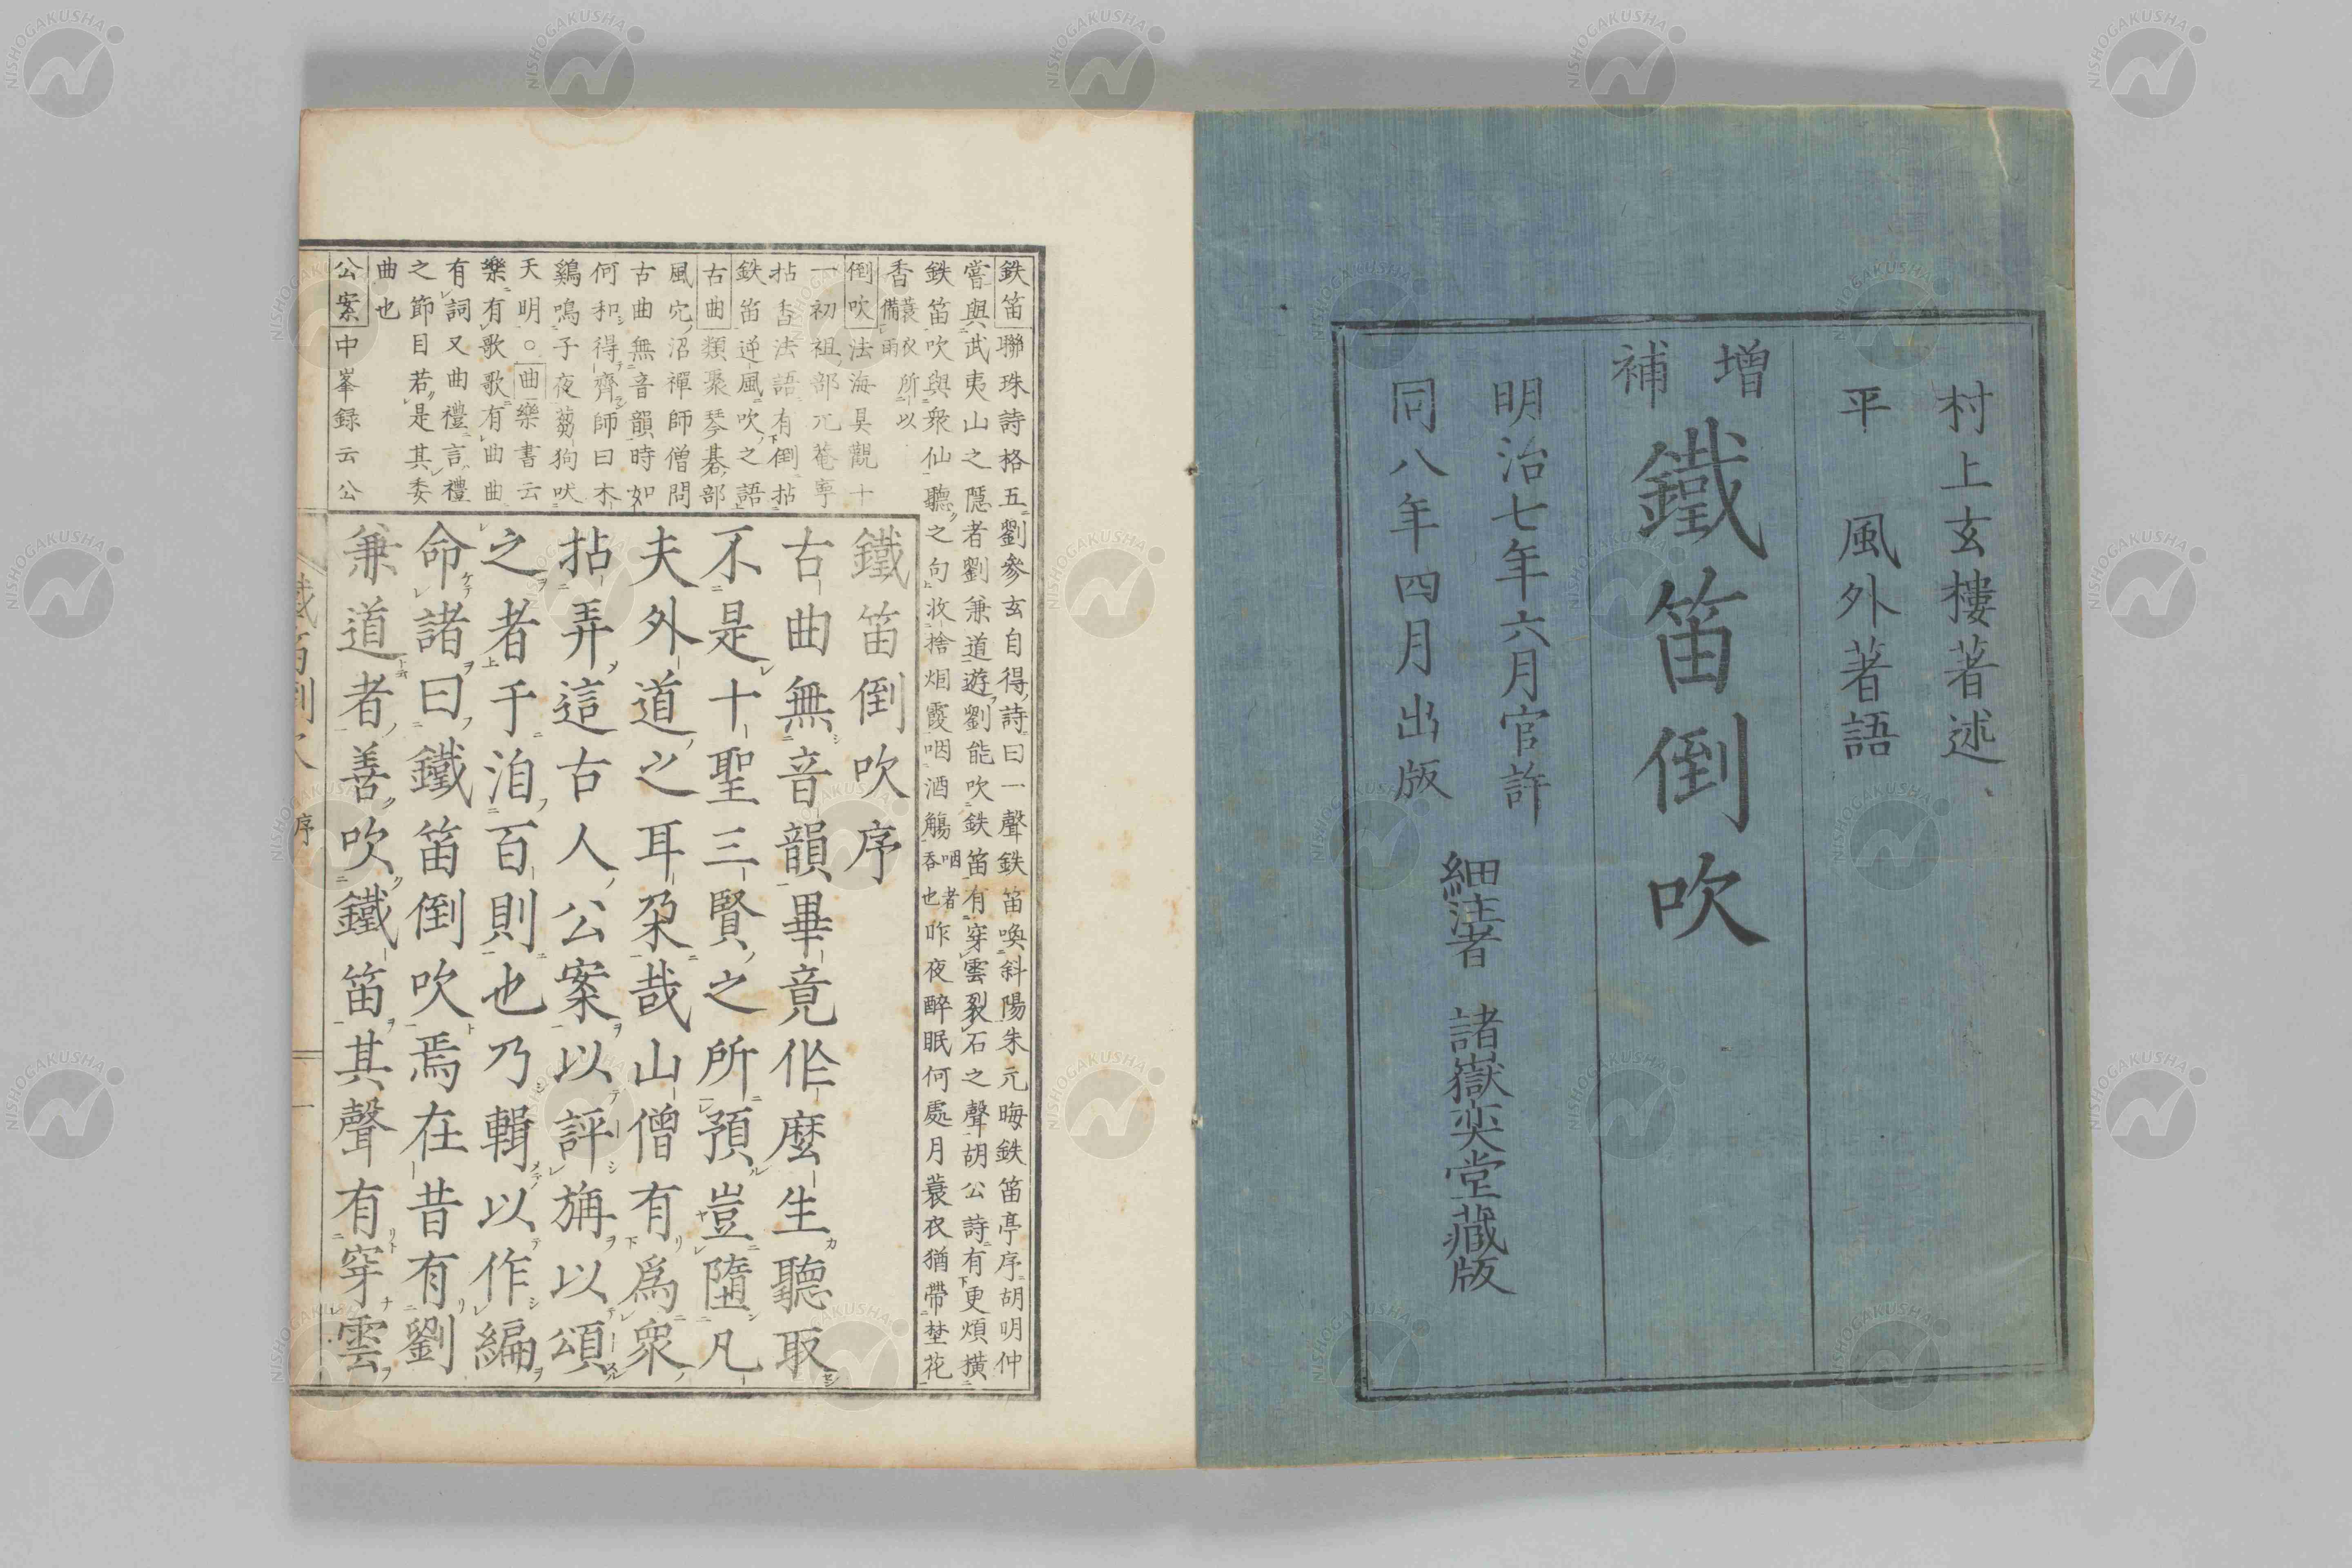 村上玄樓著述
平　風外著語
增補
鐵笛倒吹
明治七年六月官許
同八年四月出版
細注者　諸嶽奕堂藏版
鉄笛聯珠詩格五劉參玄自得詩曰一聲鉄笛喚斜陽朱元晦鉄笛亭序胡明仲
嘗與武夷山之隱者劉兼道遊劉能吹鉄笛有穿雲裂石之聲胡公詩有更煩横
鉄笛吹與衆仙聽之句收捨烟霞咽酒觴咽者吞也昨夜醉眠何處月蓑衣猶帶埜花
香蓑衣所以備雨
倒吹法海具觀十
一初祖部元菴寧
拈香法語有倒拈
鉄笛逆風吹之語
古曲類聚琴碁部
風穴沼禪師僧問
古曲無音韻時如
何和得齊師曰木
鷄鳴子夜蒭狗吠
天明○曲樂書云
樂有歌歌有曲曲
有詞又曲禮言禮
之節目若是其委
曲也
公案中峯録云公
鐵笛倒吹序
古曲無音韻畢竟作麼生聽取
不是十聖三賢之所預豈墮凡
夫外道之耳朶哉山僧有爲衆
拈弄這古人公案以評旃以頌
之者于洎百則也乃輯以作編
命諸曰鐵笛倒吹焉在昔有劉
兼道者善吹鐵笛其聲有穿雲
鐵笛倒吹　序　一
NISHOGAKUSHA